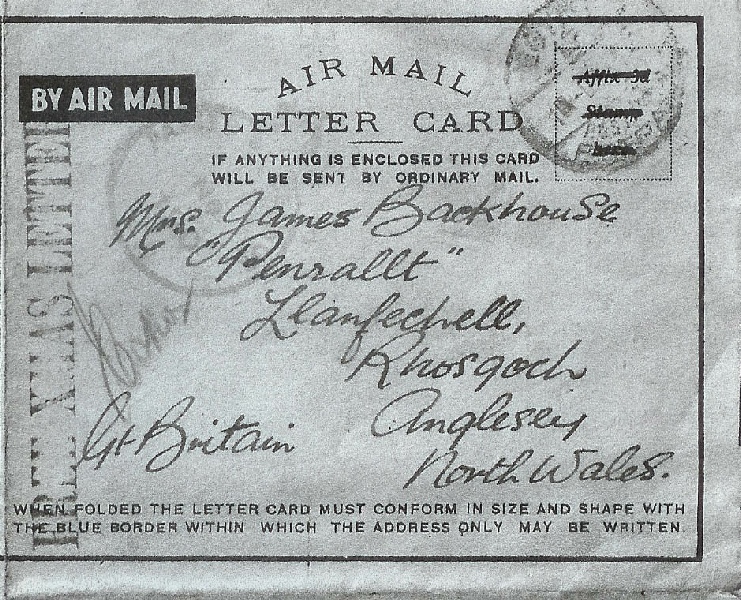 BY AIR MAIL
AIR MAIL
LETTER CARD
IF ANYTHING IS ENCLOSED THIS CARD
WILL BE SENT BY ORDINARY MAIL.
Affix 3d
Stamp
here
FREE XMAS LETTER
Mrs. James Backhouse
"Penrallt"
Llanfechell,
Rhosgoch
Anglesey
Gt Britain
North Wales.
WHEN FOLDED THE LETTER CARD MUST CONFORM IN SIZE AND SHAPE WITH
THE BLUE BORDER WITHIN WHICH THE ADDRESS ONLY MAY BE WRITTEN.